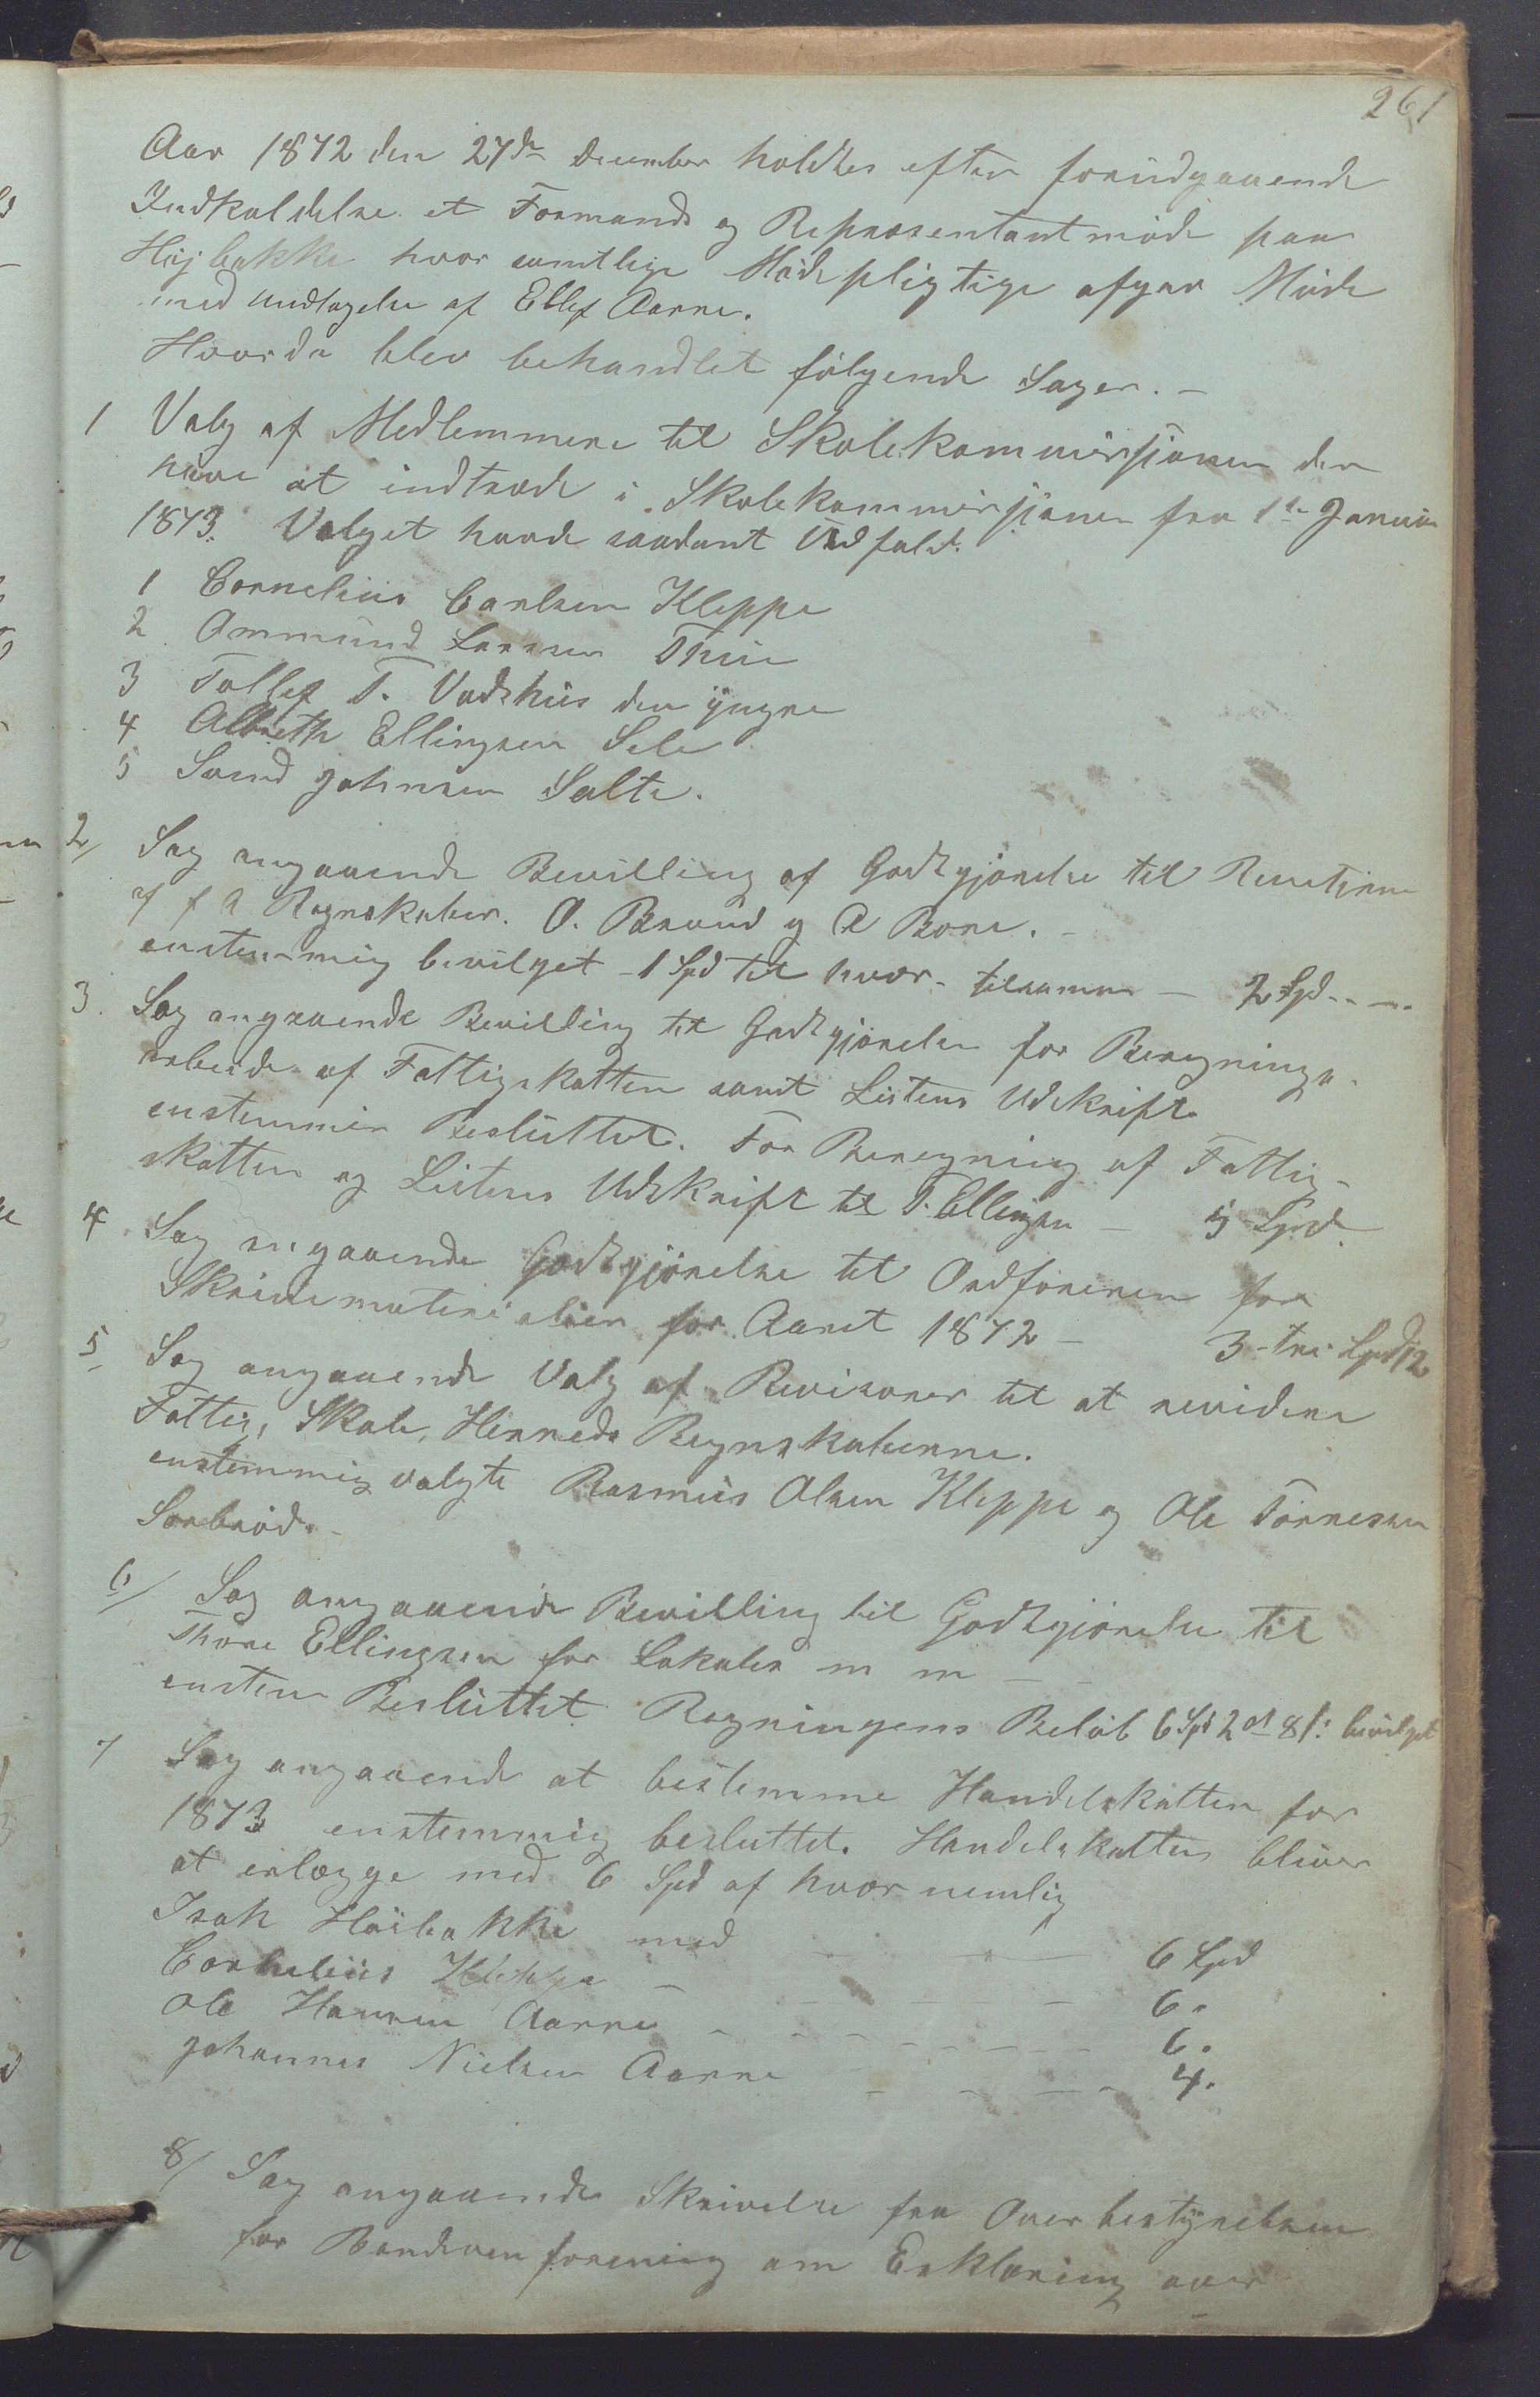 261
Aar 1872 den 27de December holdtes efter forudgaaende
Indkaldelse et Formands og Repræsentantmøde paa
Højbakke hvor samtlige Mødepligtige afgav Møde
med undtagelse af Ellef Aarre.
Hvorda blev behandlet følgende Sager. -
1 Valg af Medlemmere til Skolekommissjonen der
have at indtræde i Skolekommissjonen fra 1ste Januar
1873. Valget havde saadant Udfald.
1 Cornelius Carlsen Kleppe
2 Ammund Larsen Thu
3 Tollef T. Vadshus den yngre
4 Albreth Ellingsen Sele
5 Svend Johnsen Salte.
2/ Sag angaaende Bevilling af Godtgjørelse til
af f A Regnskaber. O. Braud og A Bore. -
enstemmig bevilget - 1 Spd til hver - tilsammen - 2 Spd
3. Sag angaaende Bevilling til Godtgjørelse for Beregnings-
arbeide af Fattigskatten samt Listens Udskrift
enstemmig Besluttet. For Beregning af Fattig-
skatten og Listens Udskrift til T. Ellingsen - 5 Spd.
4 Sag angaaende Godtgjørelse til Ordføreren for
Skrivematerialier for Aaret 1872 - 3 - tre Spd
5 Sag angaaende Valg af Revisorer til at revidere
Fattig, Skole, Herreds Regnskaberne.
enstemmig valgte Rasmus Olsen Kleppe og Ole Tørresen
Sørbrød. -
6/ Sag angaaende Bevilling til Godtgjørelse til
Thore Ellingsen for Lokaler m m -
enstem Besluttet Regningens Beløb 6 Spd 2 ort 8 s: bevilget
7 Sag angaaende at bestemme Handelskatten for
1873 enstemmig besluttet. Handelskatten bliver
at erlægge med 6 Spd af hver nemlig
Isak Høibakke med - 6 Spd
Cornelius Kleppe - 6.
Ole Hansen Aarre - 6.
Johannes Nielsen Aarre - 4.
8/ Sag angaaende Skrivelse fra Overbestyrelsen
for Bondevenforening om Erklæring over